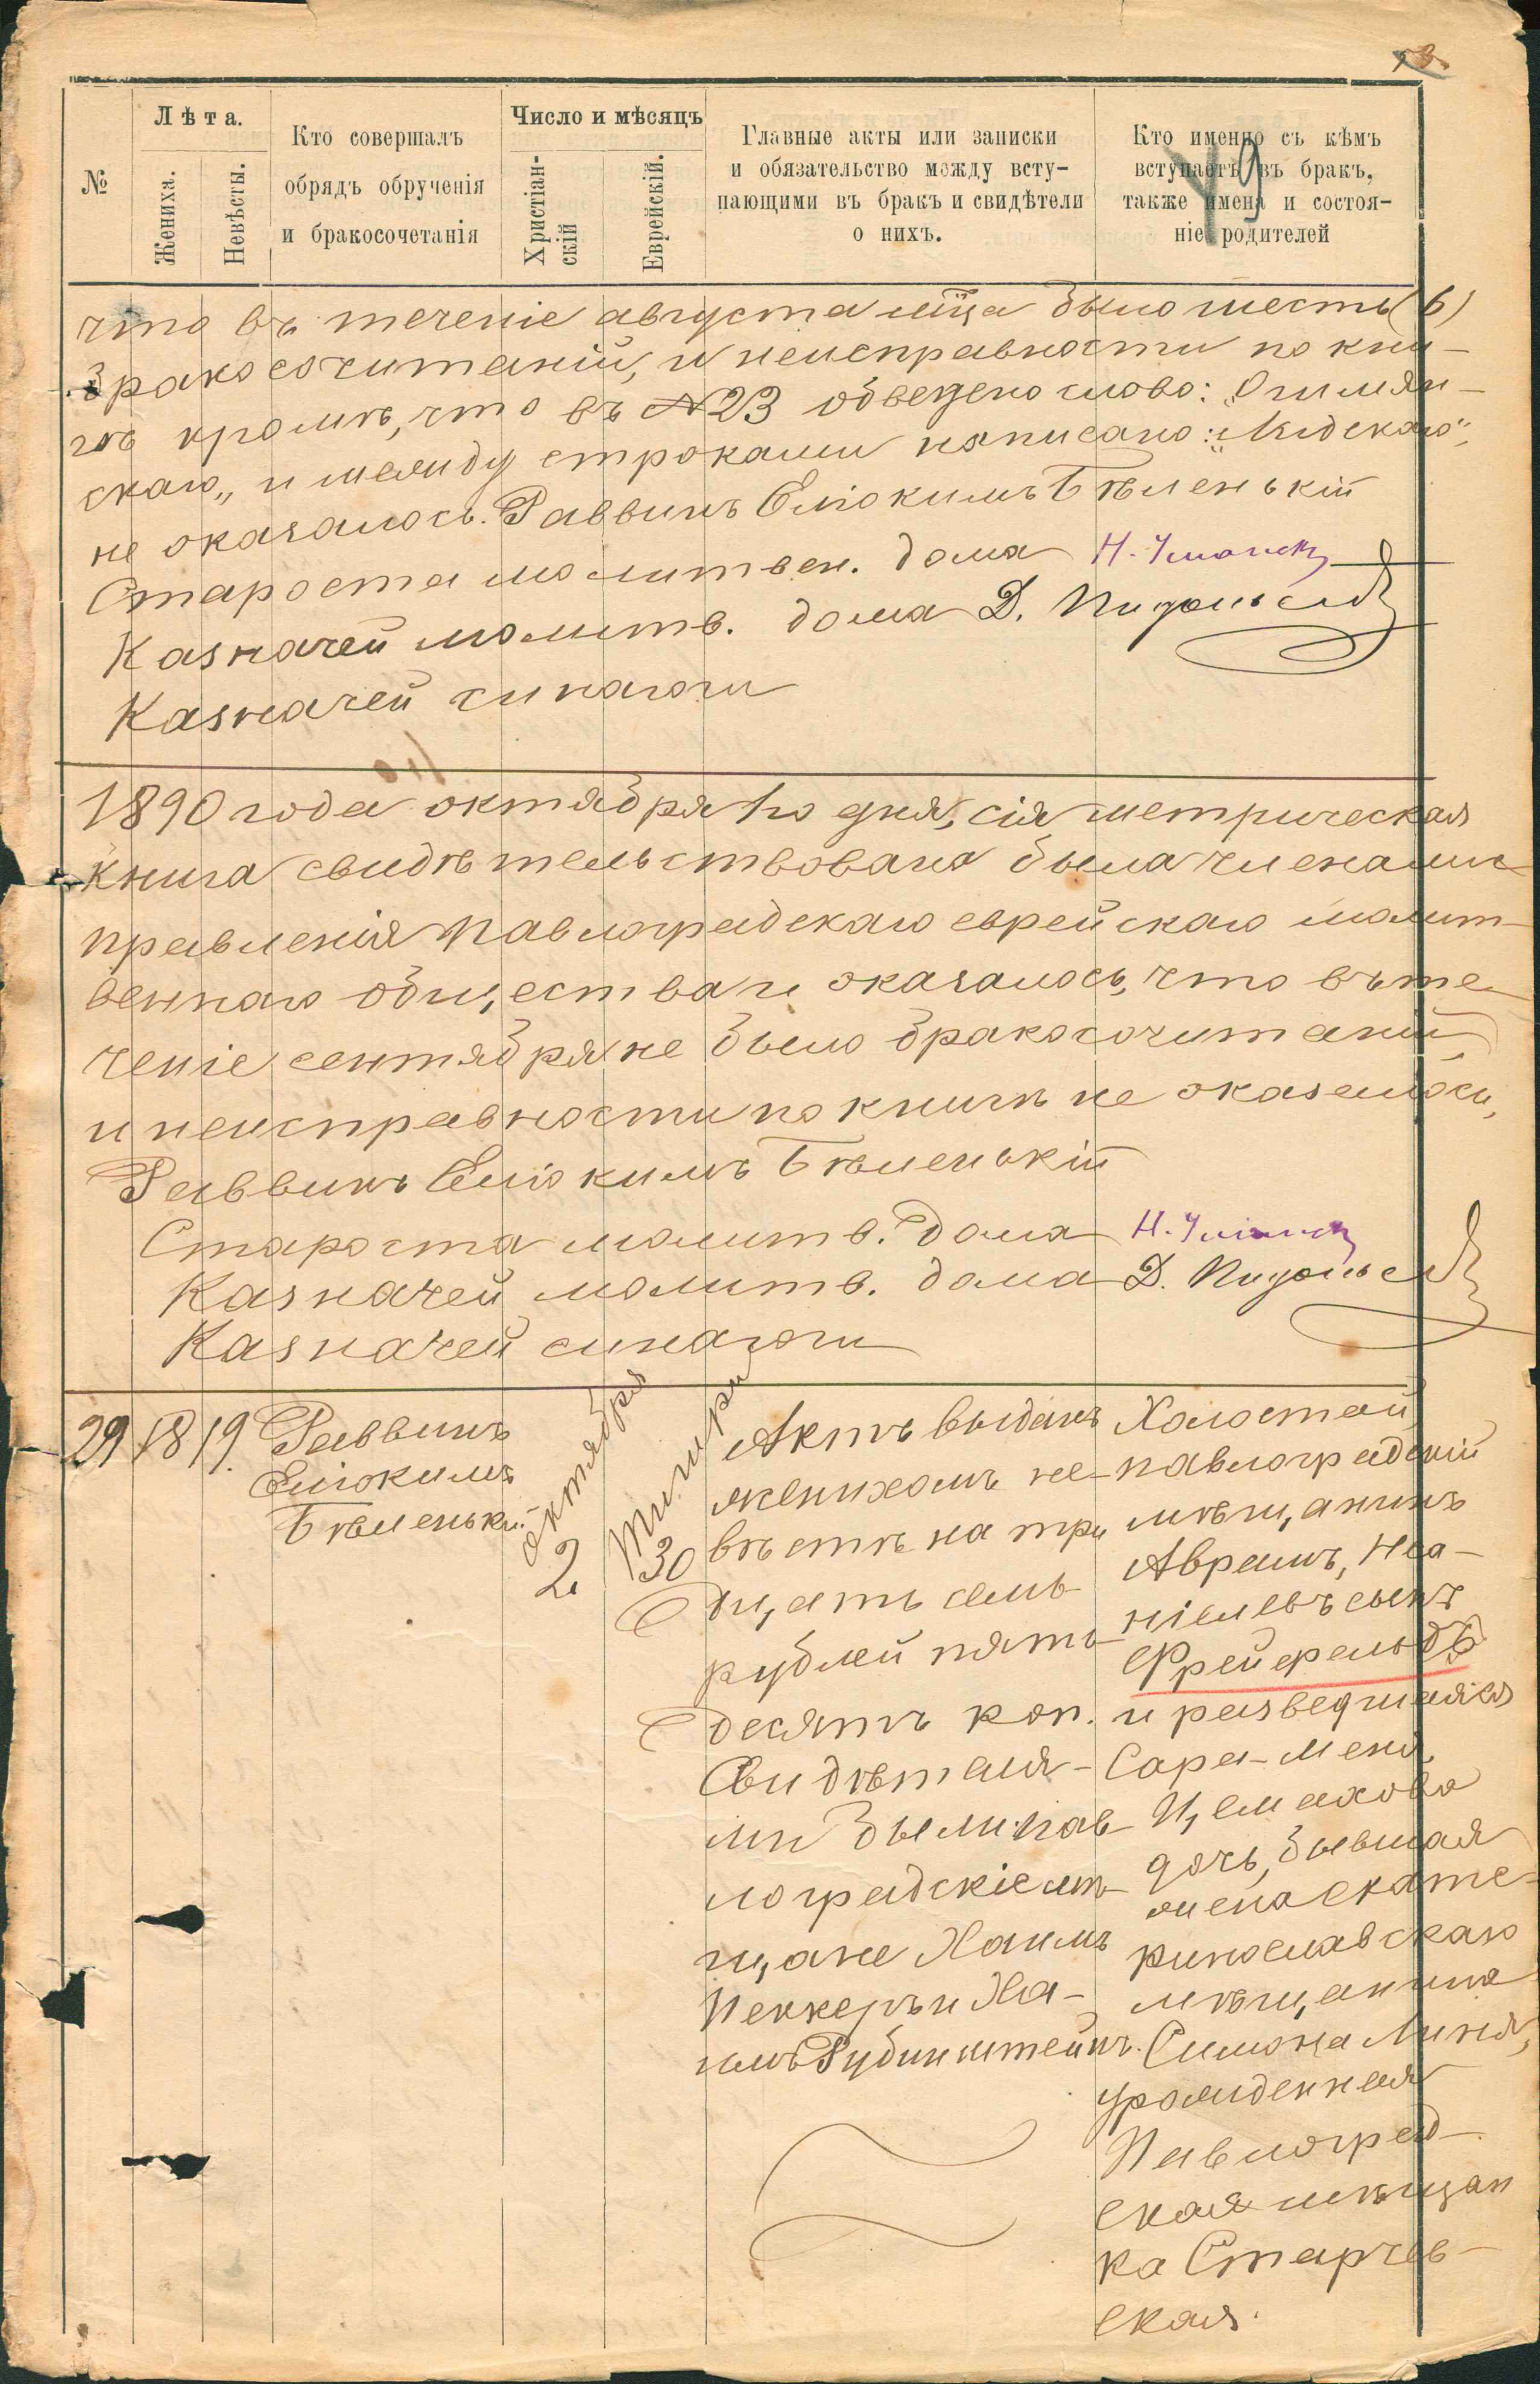 Лѣта.
Число и мѣсяцъ
№
Жениха.
Невѣсты.
Кто совершалъ
обрядъ обрученія
и бракосочетанія
Христіан-
скій
Еврейскій.
Главные акты или записки
и обязательство между всту-
пающими въ бракъ и свидѣтели
о нихъ.
Кто именно съ кѣмъ
вступаетъ въ бракъ,
также имена и состоя-
ніе родителей
что въ теченіе августа мѣца было шесть (6)
бракосочитаній, и неисправности по кни-
гѣ кромѣ, что въ №23 обведено слово:
скаго„ и между строками написано:
не оказалось. Раввинъ Еліокимъ Бѣленькій
Староста молитвен. дома Н. Уманск
Казначей молитв. дома Д.
Казначей синагоги
1890 года октября 1го дня, сія метрическая
книга свидѣтельствована была членами
правленія Павлоградскаго еврейскаго молит-
веннаго общества и оказалось, что въ те-
ченіе сентября не было бракосочитаній,
и неисправности по книгѣ не оказалось,
Раввинъ Еліокимъ Бѣленькій
Староста молитв. дома Н. Уманск
Казначей молитв. дома Д.
Казначей синагоги
29 18 19. Раввинъ
Еліокимъ
Бѣленькій.
октября
2
Тишри
30
Актъ выданъ
женихомъ не-
вѣстѣ на три
дцать семь
рублей пять
десятъ коп.
Свидѣтеля-
ми были: пав-
лоградскіе мѣ-
щане Хаимъ
Пеккеръ и Ха-
имъ Рубинштейнъ.
Холостой
павлоградскій
мѣщанинъ
Аврамъ, Неа-
ніелевъ сынъ
Фрейфельдъ
и разведшаяся
Сара-Меня,
Цемахова
дочь, бывшая
жена екате-
ринославскаго
мѣщанина
Симона Линя,
урожденная
Павлоград-
ская мѣщан
ка Старчев-
ская.